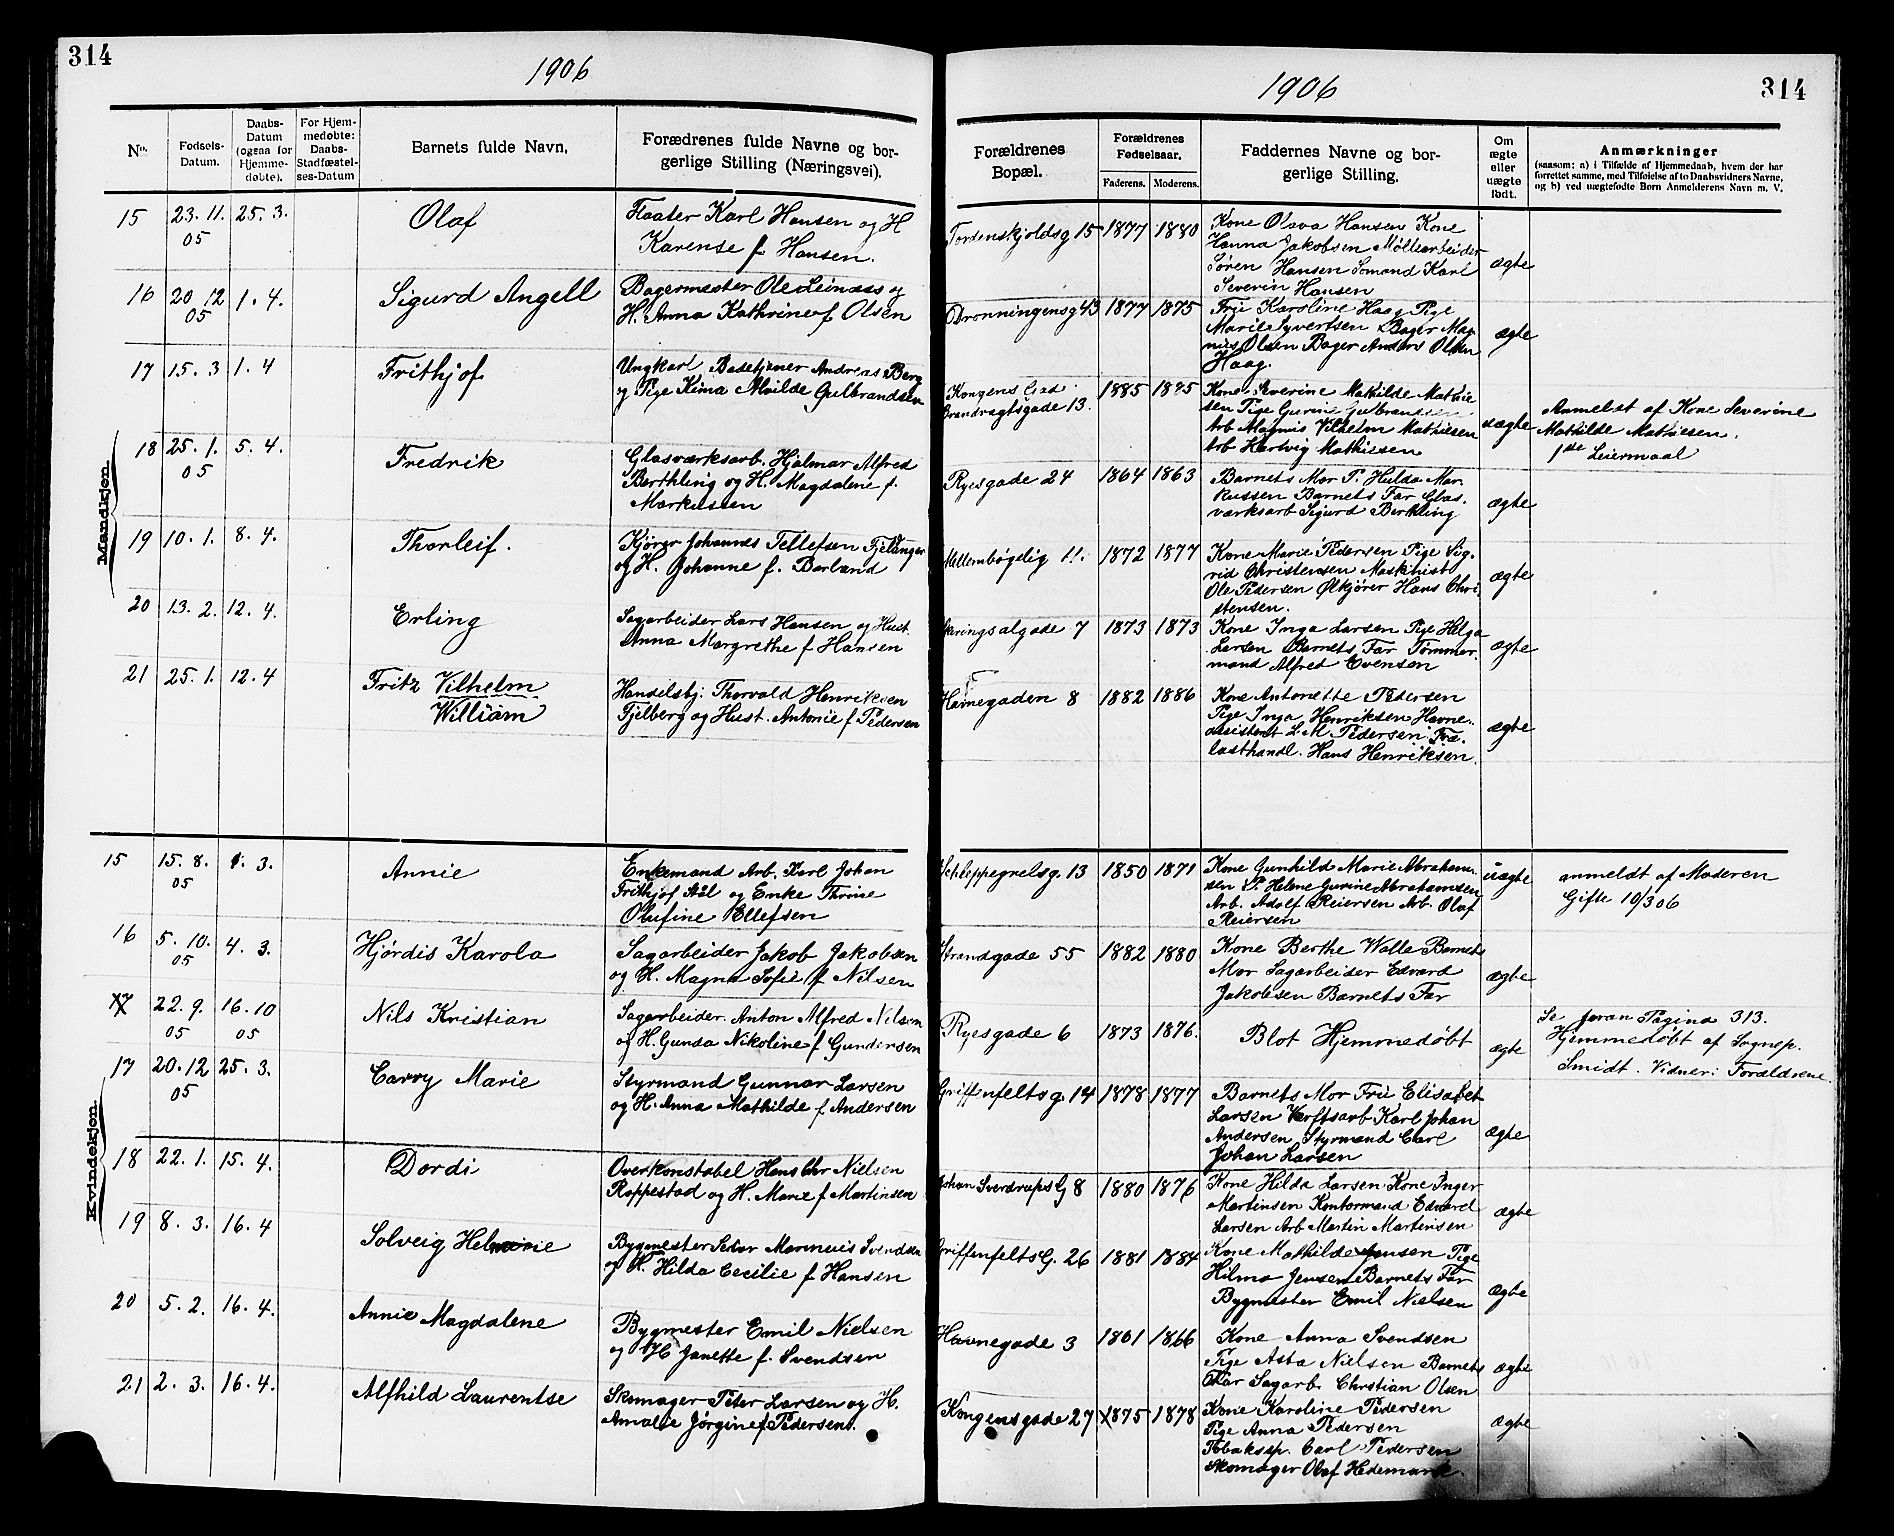 314
1906
No.
Fødsels-
Datum.
Daabs-
Datum
(ogsaa for
Hjemme-
døbte).
For Hjem-
medøbte:
Daabs-
Stadfæstel-
ses-Datum
Barnets fulde Navn.
Forædrenes fulde Navne og bor-
gerlige Stilling (Næringsvei).
Mandkjøn.
15 23. 11. 05 25. 3.
Olaf
Flaater Karl Hansen og H
Karense f. Hansen.
16 20. 12 05 1. 4.
Sigurd Angell
Bagermester Ole Leinaas og
H. Anna Kathrine f Olsen
17 15. 3 1. 4
Frithjof
Ungkarl Badetjener Andreas Berg
og Pige Kima Mailde Gulbrandsen
18 25. 1. 05 5. 4.
Fredrik
Glasværksarb. Hjalmar Alfred
Berthling og H. Magdalene f.
Markussen
19 10. 1. 8. 4.
Thorleif.
Kjører Johannes Tellefsen Fjelanger
og H. Johanne f. Borland
20 13. 2. 12. 4.
Erling
Sagarbeider Lars Hansen og Hust.
Anna Margrethe f Hansen
21 25. 1. 12. 4
Fritz Vilhelm
William
Handelsbj. Thorvald Henriksen
Fjelberg og Hust. Antonie f Pedersen
Kvindekjøn.
15 15. 8. 05 1. 3.
Annie
Enkemand Arb. Karl Johan
Frithjof Aal og Enke Thrine
Olufine Ellefsen
16 5. 10. 05 4. 3.
Hjørdis Karola
Sagarbeider Jakob Jakobsen
og H. Magna Sofie f Nilsen
17 22. 9. 05 16. 10 05
Nils Kristian
Sagarbeider. Anton Alfred Nilsen
og H. Gunda Nikoline f Gundersen
17 20. 12 05 25. 3.
Carry Marie
Styrmand Gunnar Larsen
og H. Anna Mathilde f Andersen
18 22. 1. 15. 4.
Dordi
Overkonstabel Hans Chr Nielsen
Roppestad og H. Marie f Martinsen
19 8. 3. 16. 4
Solveig
Bygmester Marinius Svendsen
og H. Hilda Cecilie f Hansen
20 5. 2. 16. 4.
Annie Magdalene
Bygmester Emil Nielsen
og H Janette f. Svendsen
21 2. 3. 16. 4.
Alfhild Laurentse
Skomager Peter Larsen og H.
Amalie Jørgine f Pedersen.
1906
314
Forældrenes
Bopæl.
Forældrenes
Fødselsaar.
Faderens. Moderens.
Faddernes Navne og bor-
gerlige Stilling.
Om
ægte
eller
uægte
født.
Anmærkninger
(saasom: a) i Tilfælde af Hjemmedaab, hvem der har
forrettet samme, med Tilføielse af to Daabsvidners Navne,
og b) ved uægtefødte Børn Anmelderens Navn m. V.
Tordenskjoldsg 15 1877 1880
Kone Olava Hansen Kone
Hanna Jakobsen Møllearbeider
Søren Hansen Sømand Karl
Severin Hansen
ægte
Dronningensg 43 1877 1875
Frü Karoline Haag Pige
Marie Syvertsen Bager Mag
nus Olsen Bager Anders Olsen
Haag.
ægte
Kongens
Brandvagtsgade 13. 1885 1885
Kone Severine Mathilde Mathie
sen Pige Gurine Gulbrandsen
Arb Magnus Vilhelm Mathiesen
Arb Hartvig Mathiesen
uægte
Anmeldt af Kone Severine
Mathilde Mathiesen.
1ste Leiermaal
Ryesgade 24 1864 1863
Barnets Mor P. Hulda Mar
kussen Barnets Far Glas
værksarb Sigurd Berthling
ægte
Mellembøgelig 11. 1872 1877
Kone Marie Pedersen Pige Sig
rid Christensen Maskinist
Ole Pedersen Ølkjører Hans Chri
stensen.
ægte
Skringsalgade 7 1873 1873
Kone Inga Larsen Pige Helga
Larsen Barnets Far Tømmer
mand Alfred Evensen
ægte
Havnegaden 8 1882 1886
Kone Antonette Pedersen
Pige Inga Henriksen Havne-
assistent L. M. Pedersen Træ-
lasthandl. Hans Henriksen.
ægte
Schleppegrelsg. 13 1850 1871
Kone Gunhild Marie Abraham
sen P. Helene Gurine Abrahamsen
Arb. Adolf Reiersen Arb. Olaf
Reiersen
uægte
anmeldt af Moderen
Gifte 10/3 06
Strandgade 55 1882 1880
Kone Berthe Walle Barnets
Mor Sagarbeider Edvard
Jakobsen Barnets Far
ægte
Ryesgade 6 1873 1876.
Blot Hjemmedøbt
ægte
Se foran Pagina 313.
Hjemmedøbt af Sognep.
Smidt. Vidner: Forældrene.
Griffenfeltsg. 14 1878 1877
Barnets Mor Frü Elisabet
Larsen Værftsarb Karl Johan
Andersen Styrmand Carl
Johan Larsen
ægte
Johan Sverdrups G 8 1880 1876
Kone Hilda Larsen Kone Inger
Martinsen Kontormand Edvard
Larsen Arb Martin Martinsen
ægte
Griffenfelts G. 26 1881 1884
Kone Mathilde Jensen Pige
Hilma Jensen Barnets Far
Bygmester Emil Nielsen
ægte
Havnegade 3 1861 1866
Kone Anna Svendsen
Pige Asta Nielsen Barnets
Far Sagarb. Christian Olsen
ægte
Kongensgade 27 1875 1878
Kone Karoline Pedersen
Pige Anna Pedersen
Tobaksp. Carl Pedersen
Skomager Olaf Hedemark.
ægte